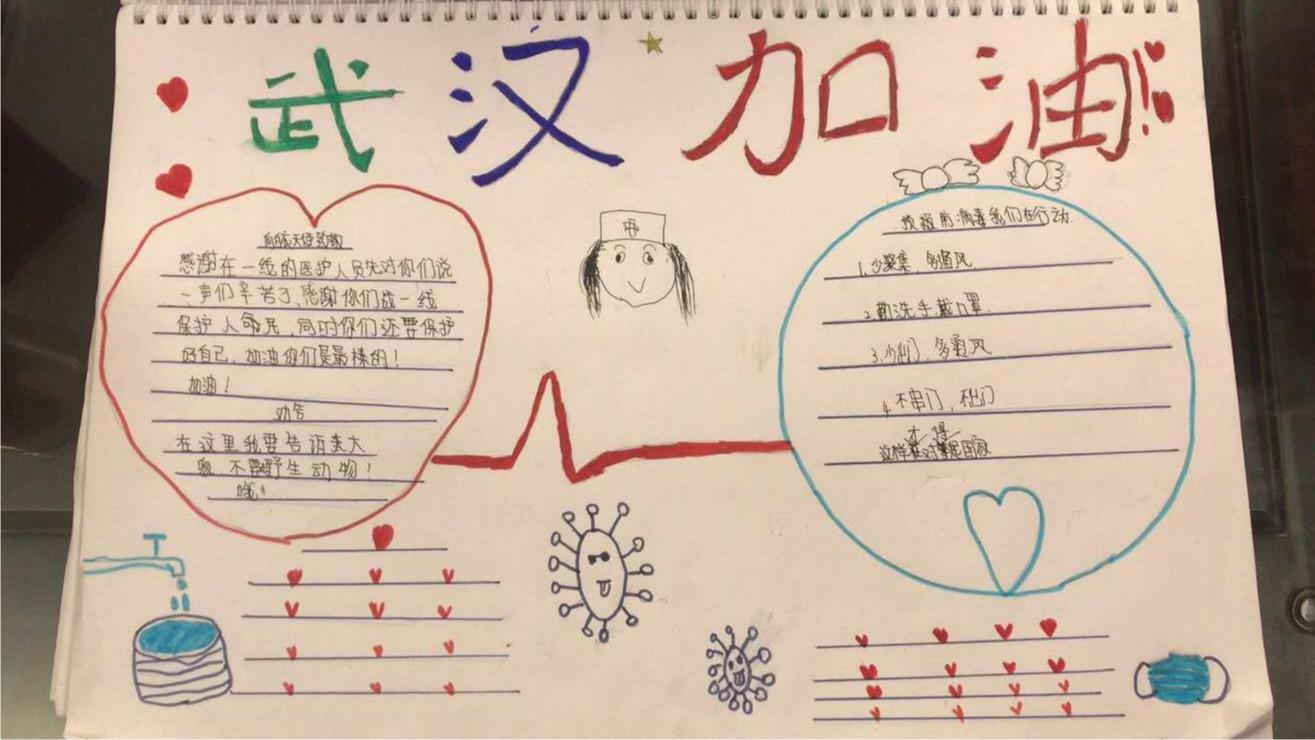 武汉加油!!
向白衣天使致敬
感谢在一线的医护人员先对你们说
一声们辛苦了、感谢你们战一线
保护人命民，同时你们还要保护
好自己，加油你们是最棒的！
加油！
劝告
在这里我要告诉大
家不要野生动物！
哦！
中
病毒我们在行动.
1.少聚集，多通风，
2.勤洗手戴口罩.
3.少出门、多通风
4.不串门，不出门
这样 对 国家